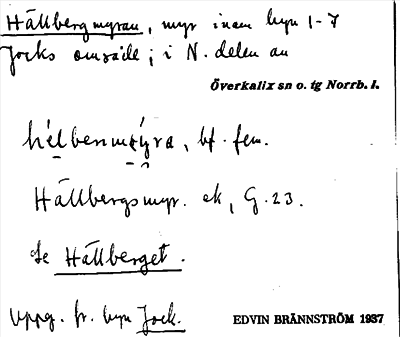 Hällbergmyran, myr inom byn 1-7
Jocks område; i N. delen av
Överkalix sn o. tg Norrb. l.
hélbenmýra, bf. fem.
Hällbergsmyr. ek, G.23.
Se Hällberget.
Uppg. fr. byn Jock.
EDVIN BRÄNNSTRÖM 1937